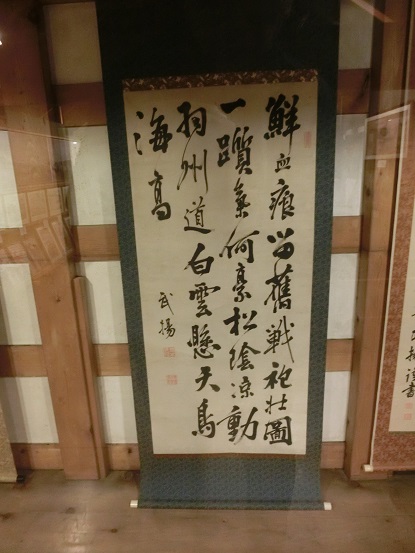 鮮血痕留舊戦袍壮圖
一躓氣何豪松陰涼動
羽州道白雲懸天鳥
海高
武揚